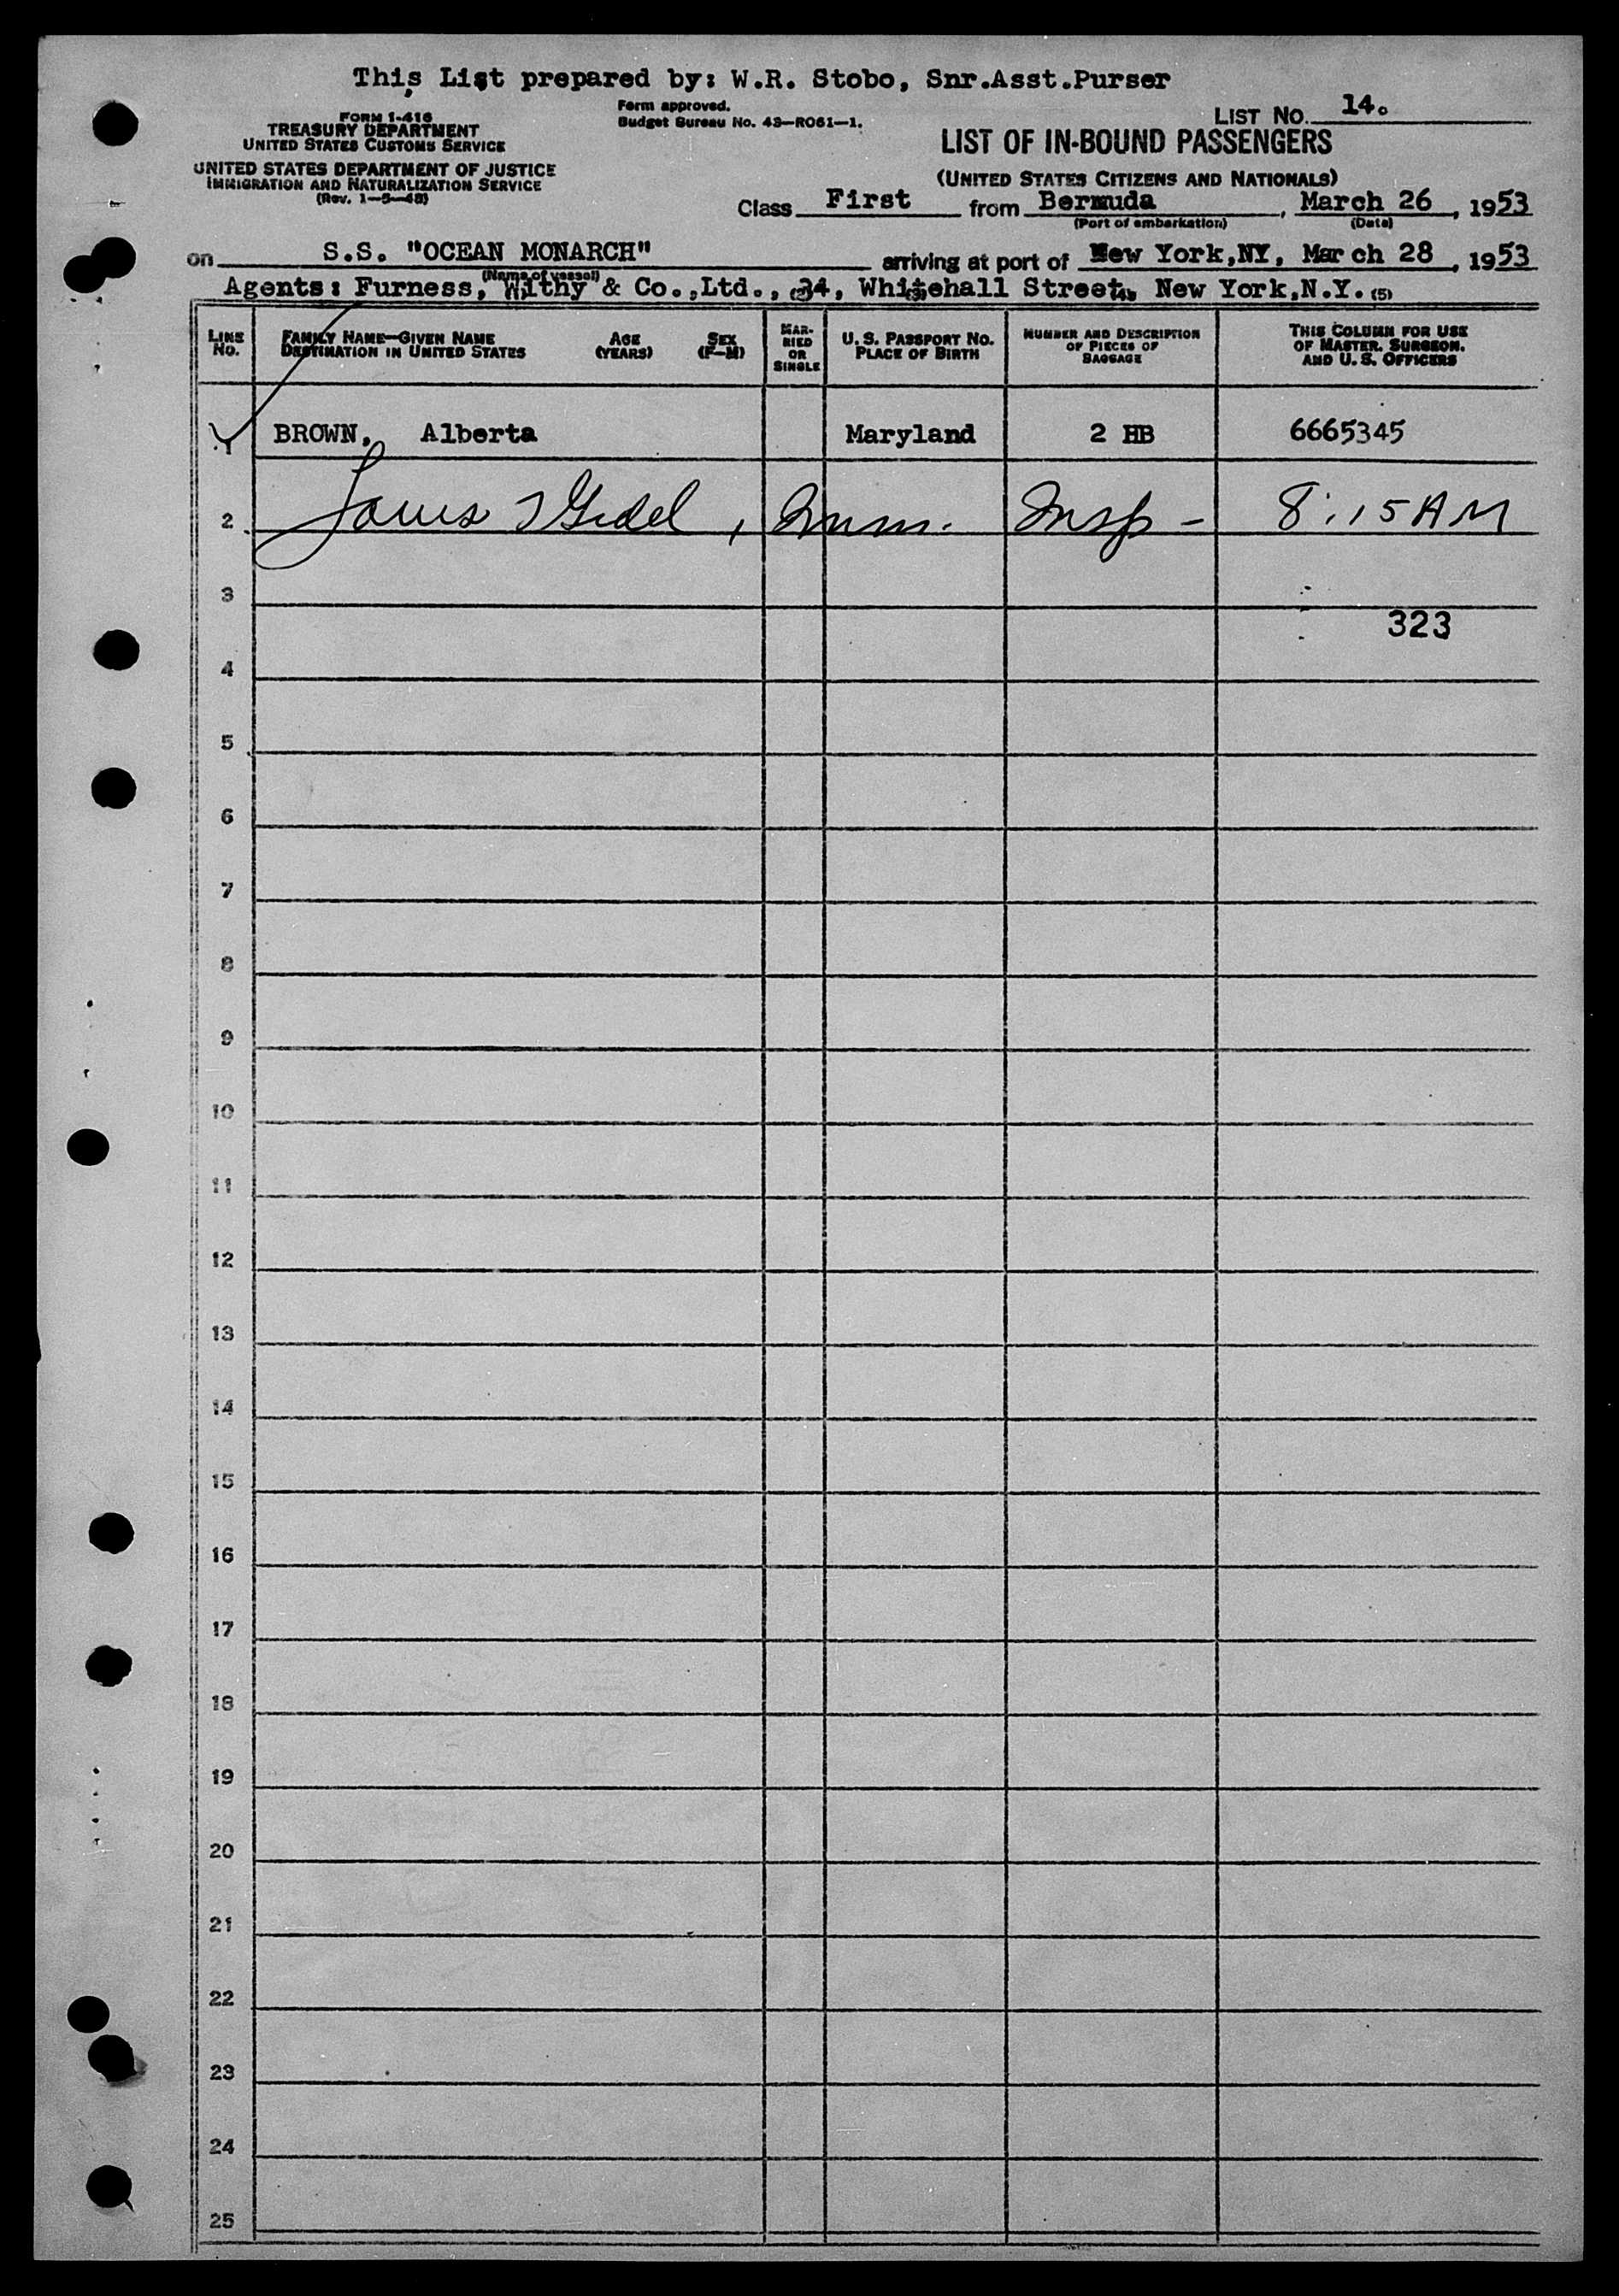 This List prepared by: W.R. Stobo, Snr.Asst.Purser
FORM I-416
TREASURY DEPARTMENT
UNITED STATES CUSTOMS SERVICE
UNITED STATES DEPARTMENT OF JUSTICE
IMMIGRATION AND NATURALIZATION SERVICE
(Rev. 1-5-48)
Form approved.
Budget Bureau No. 43-R061-1.
LIST NO. 14.
LIST OF IN-BOUND PASSENGERS
(UNITED STATES CITIZENS AND NATIONALS)
Class First from Bermuda, March 26, 1953
(Port of embarkation) (Date)
on S.S. "OCEAN MONARCH" arriving at port of New York,NY, March 28, 1953
(Name of vessel)
Agents: Furness, Withy & Co.,Ltd., 34, Whitehall Street, New York,N.Y.
(2) (3) (4) (5)
LINE No. FAMILY NAME—GIVEN NAME DESTINATION IN UNITED STATES AGE (YEARS) SEX (F-M) MARRIED OR SINGLE U. S. PASSPORT NO. PLACE OF BIRTH NUMBER AND DESCRIPTION OF PIECES OF BAGGAGE THIS COLUMN FOR USE OF MASTER, SURGEON, AND U. S. OFFICERS
1 BROWN, Alberta Maryland 2 HB 6665345
2 Imm. Insp - 8:15 AM
3
323
4
5
6
7
8
9
10
11
12
13
14
15
16
17
18
19
20
21
22
23
24
25